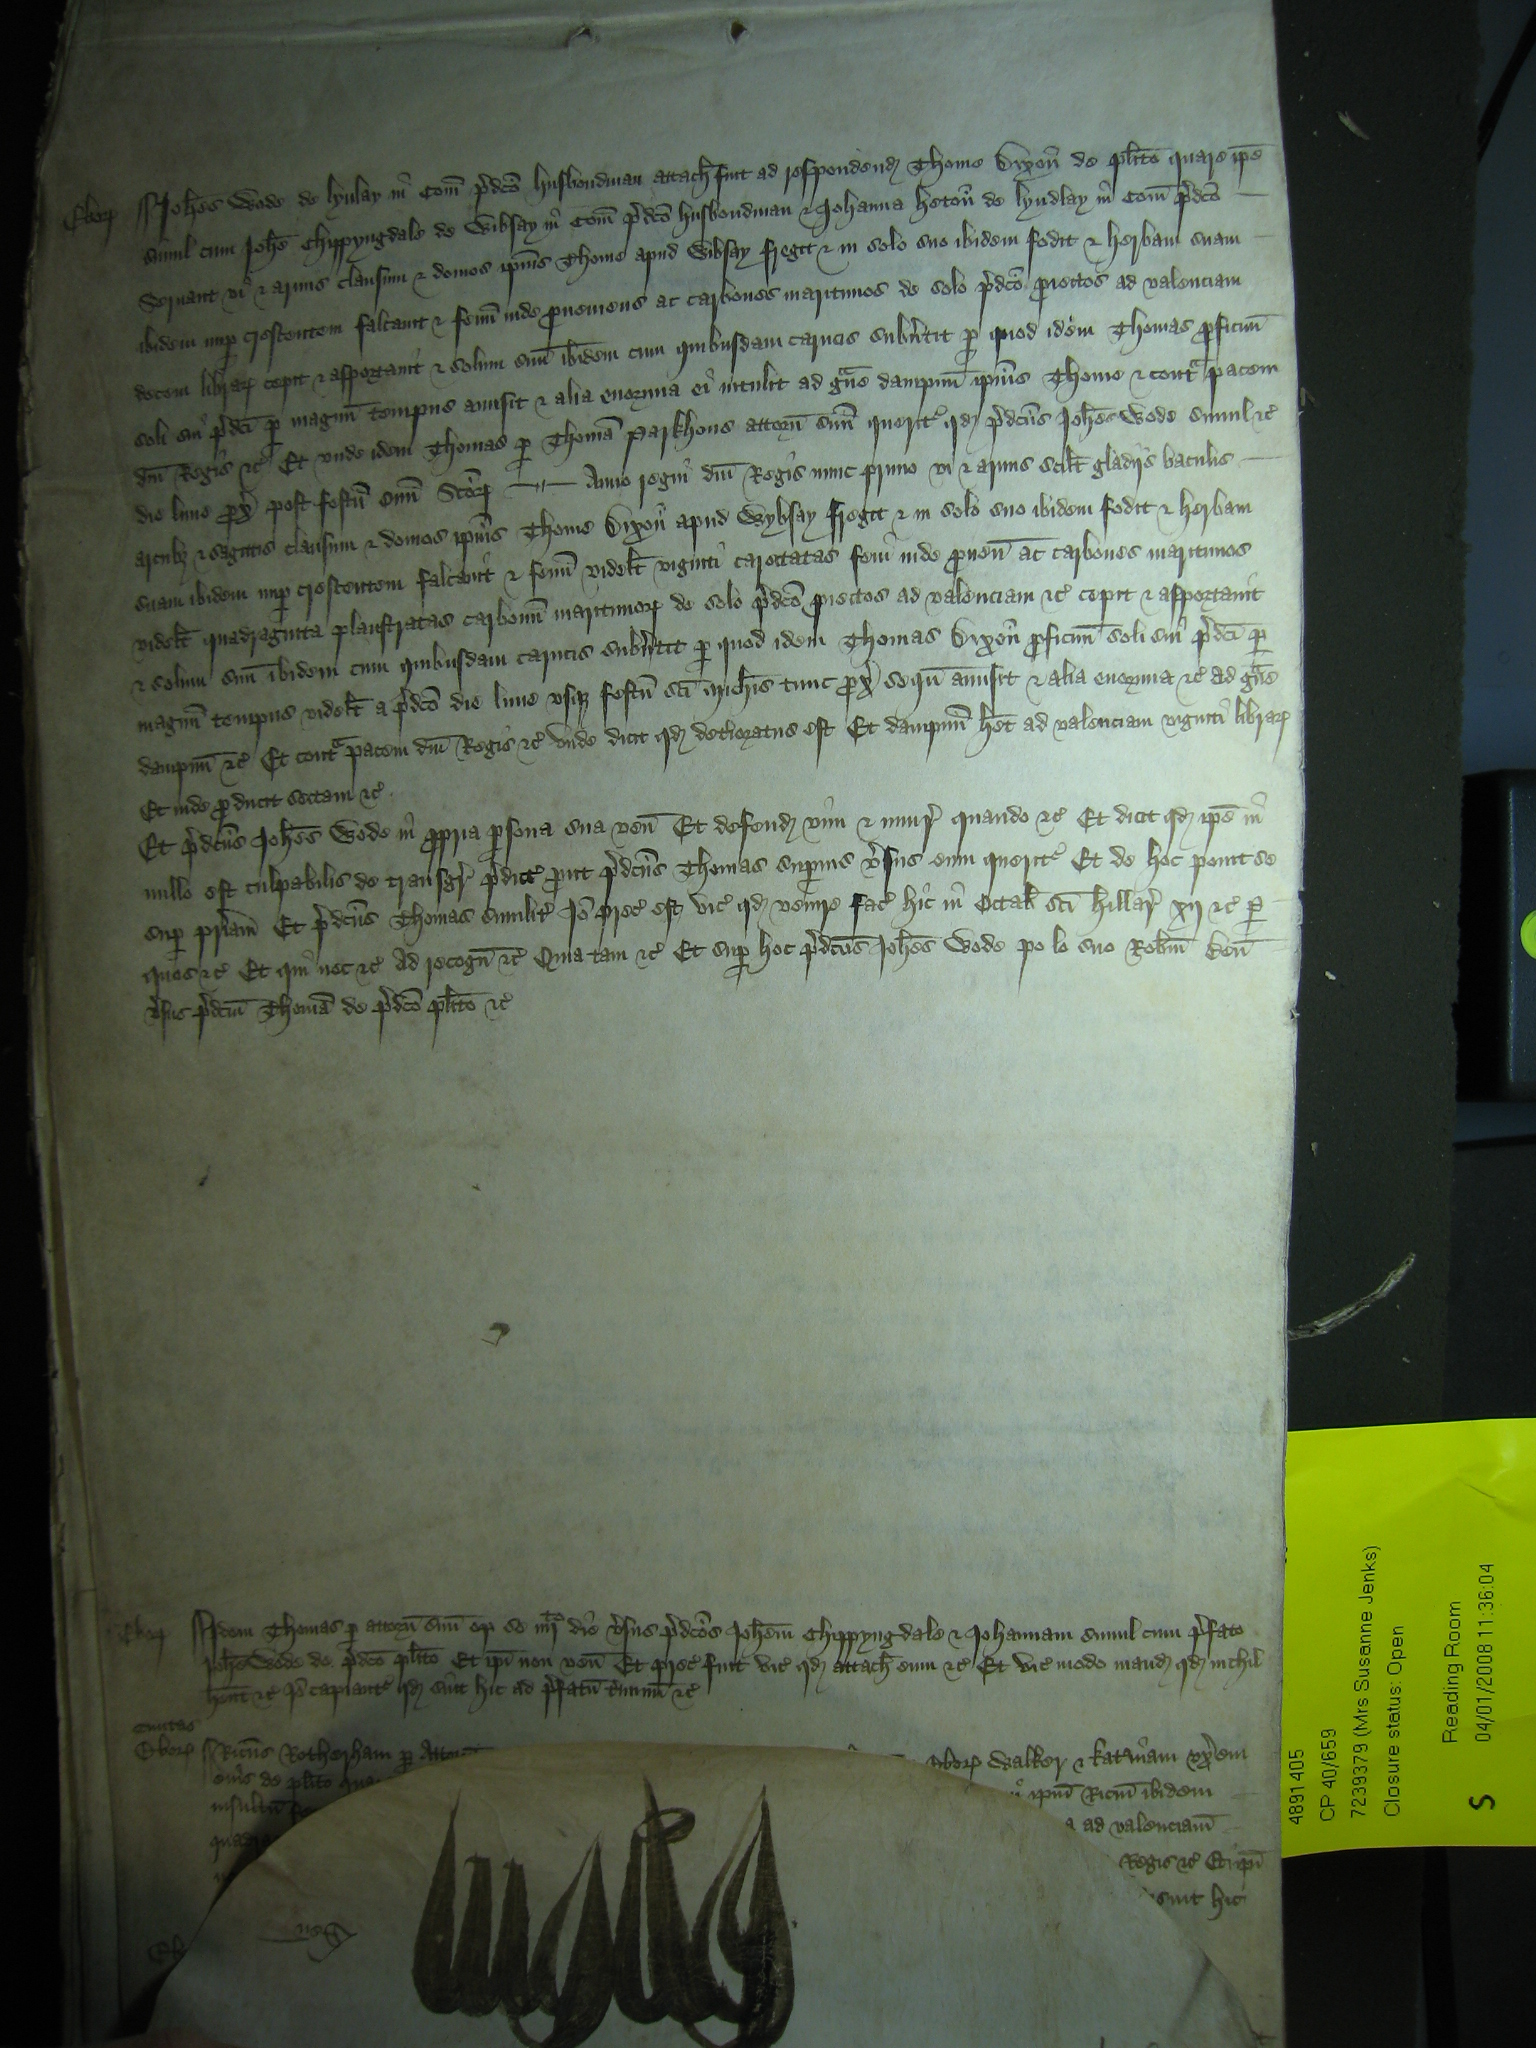 Ebor Joh̄es Wode de lynlay in Com̄ p̄dc̄o husbondman attach fuit ad respondend Thome Dixon de pl̄ito quare ip̄e
simul cum Joh̄e Chippyngdale de Wibsay in Com̄ p̄dc̄o husbondman & Johanna heton de lyndlay in Com̄ p̄dc̄o
Seruant vi & armis clausum & domos ip̄ius Thome apud Wibsay fregit & in solo suo ibidem fodit & herbam suam
ibidem nup crescentem falcauit & fenū inde proueniens ac carbones maritimos de solo p̄dc̄o proiectos ad valenciam
decem librar cepit & asportauit & solum suū ibidem cum quibusdam carucis subūtit p quod idem Thomas proficuū
soli sui p̄dc̄i p magnū tempus amisit & alia enormia ei intulit ad gue dampnū ip̄ius Thome & contra pacem
dn̄i Regis &c Et vnde idem Thomas p Thomā Parkhous attorn suū querit qd p̄dc̄us Joh̄es Wode simul &c
die lune prox post festū Om̄i Sc̄or Anno regni dn̄i Regis nunc primo vi & armis scilt gladijs baculis
arcub & sagittis clausum & domos ip̄ius Thome Dixon apud Wybsay fregit & in solo suo ibidem fodit & herbam
suam ibidem nup crescentem falcauit & fenū videlt viginti carectatas feni inde prouen ac carbones maritimos
videlt quadraginta plaustratas carbonū maritimor de solo p̄dc̄o proiectos ad valenciam &c cepit & asportauit
& solum suū ibidem cum quibusdam carucis subūtit p quod idem Thomas Dixon proficuū soli sui p̄dc̄i p
magnū tempus videlt a p̄dc̄o die lune vsq festū sc̄i Mich̄is tunc prox sequn̄ amisit & alia enormia &c ad gue
dampnū &c Et contra pacem dn̄i Regis &c vnde dicit qd deterioratus est Et dampnū h̄et ad valenciam viginti librar
Et inde producit sectam &c
Et p̄dc̄us Joh̄es Wode in propria psona sua ven̄ Et defend vim & iniur quando &c Et dicit qd ip̄e in
nullo est culpabilis de transgr p̄dict prout p̄dc̄us Thomas supius v̄sus eum querit Et de hoc ponit se
sup pr̄iam Et p̄dc̄us Thomas similit Jo prec est vic qd venire fac hic in Octab sc̄i hillar xij &c p
quos &c Et qui nec &c Ad recogn̄ &c Quia tam &c Et sup hoc p̄dc̄us Joh̄es Wode po lo suo Rob̄m
v̄sus p̄dc̄m Thomā de p̄dc̄o pl̄ito &c
Ebor Idem Thomas p attorn suū op se iiij die v̄sus p̄dc̄os Joh̄em Chippyngdale & Johannam simul cum p̄fato
Joh̄e Wode de p̄dc̄o pl̄ito Et ip̄i non ven̄ Et prec fuit vic qd attach eum &c Et vic modo mand qd nichil
h̄ent &c Jo capiant qd sint hic ad p̄fatū t̄minū &c
Ciuitas
Ebor Ric̄us Rotherham p Attorn Ebor Walker & Kat̄inam vx̄em
eius de pl̄ito qua ip̄m Ric̄m ibidem
insultū ad valenciam
quadra Regis &c Et ip̄i
sint hic
Eb
4891405
CP 40/659
7239379 (Mrs Susanne Jenks)
Closure status: Open
Reading Room
04/01/2008 11:36:04
S